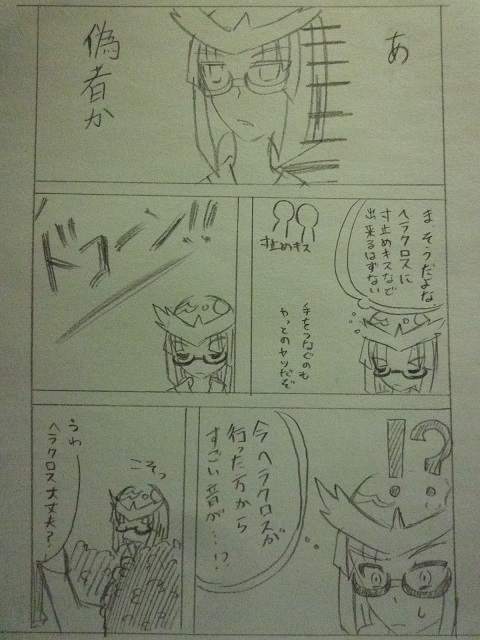 あ
偽者か
まそうだよな
ヘラクロスに
寸止めキスなど
出来るはずない
寸止めキス
手をつなぐのも
やっとのヤツだぞ
ドコーン!!
!?
今ヘラクロスが
行った方から
すごい音が…!?
こそっ
うわ
ヘラクロス大丈夫?